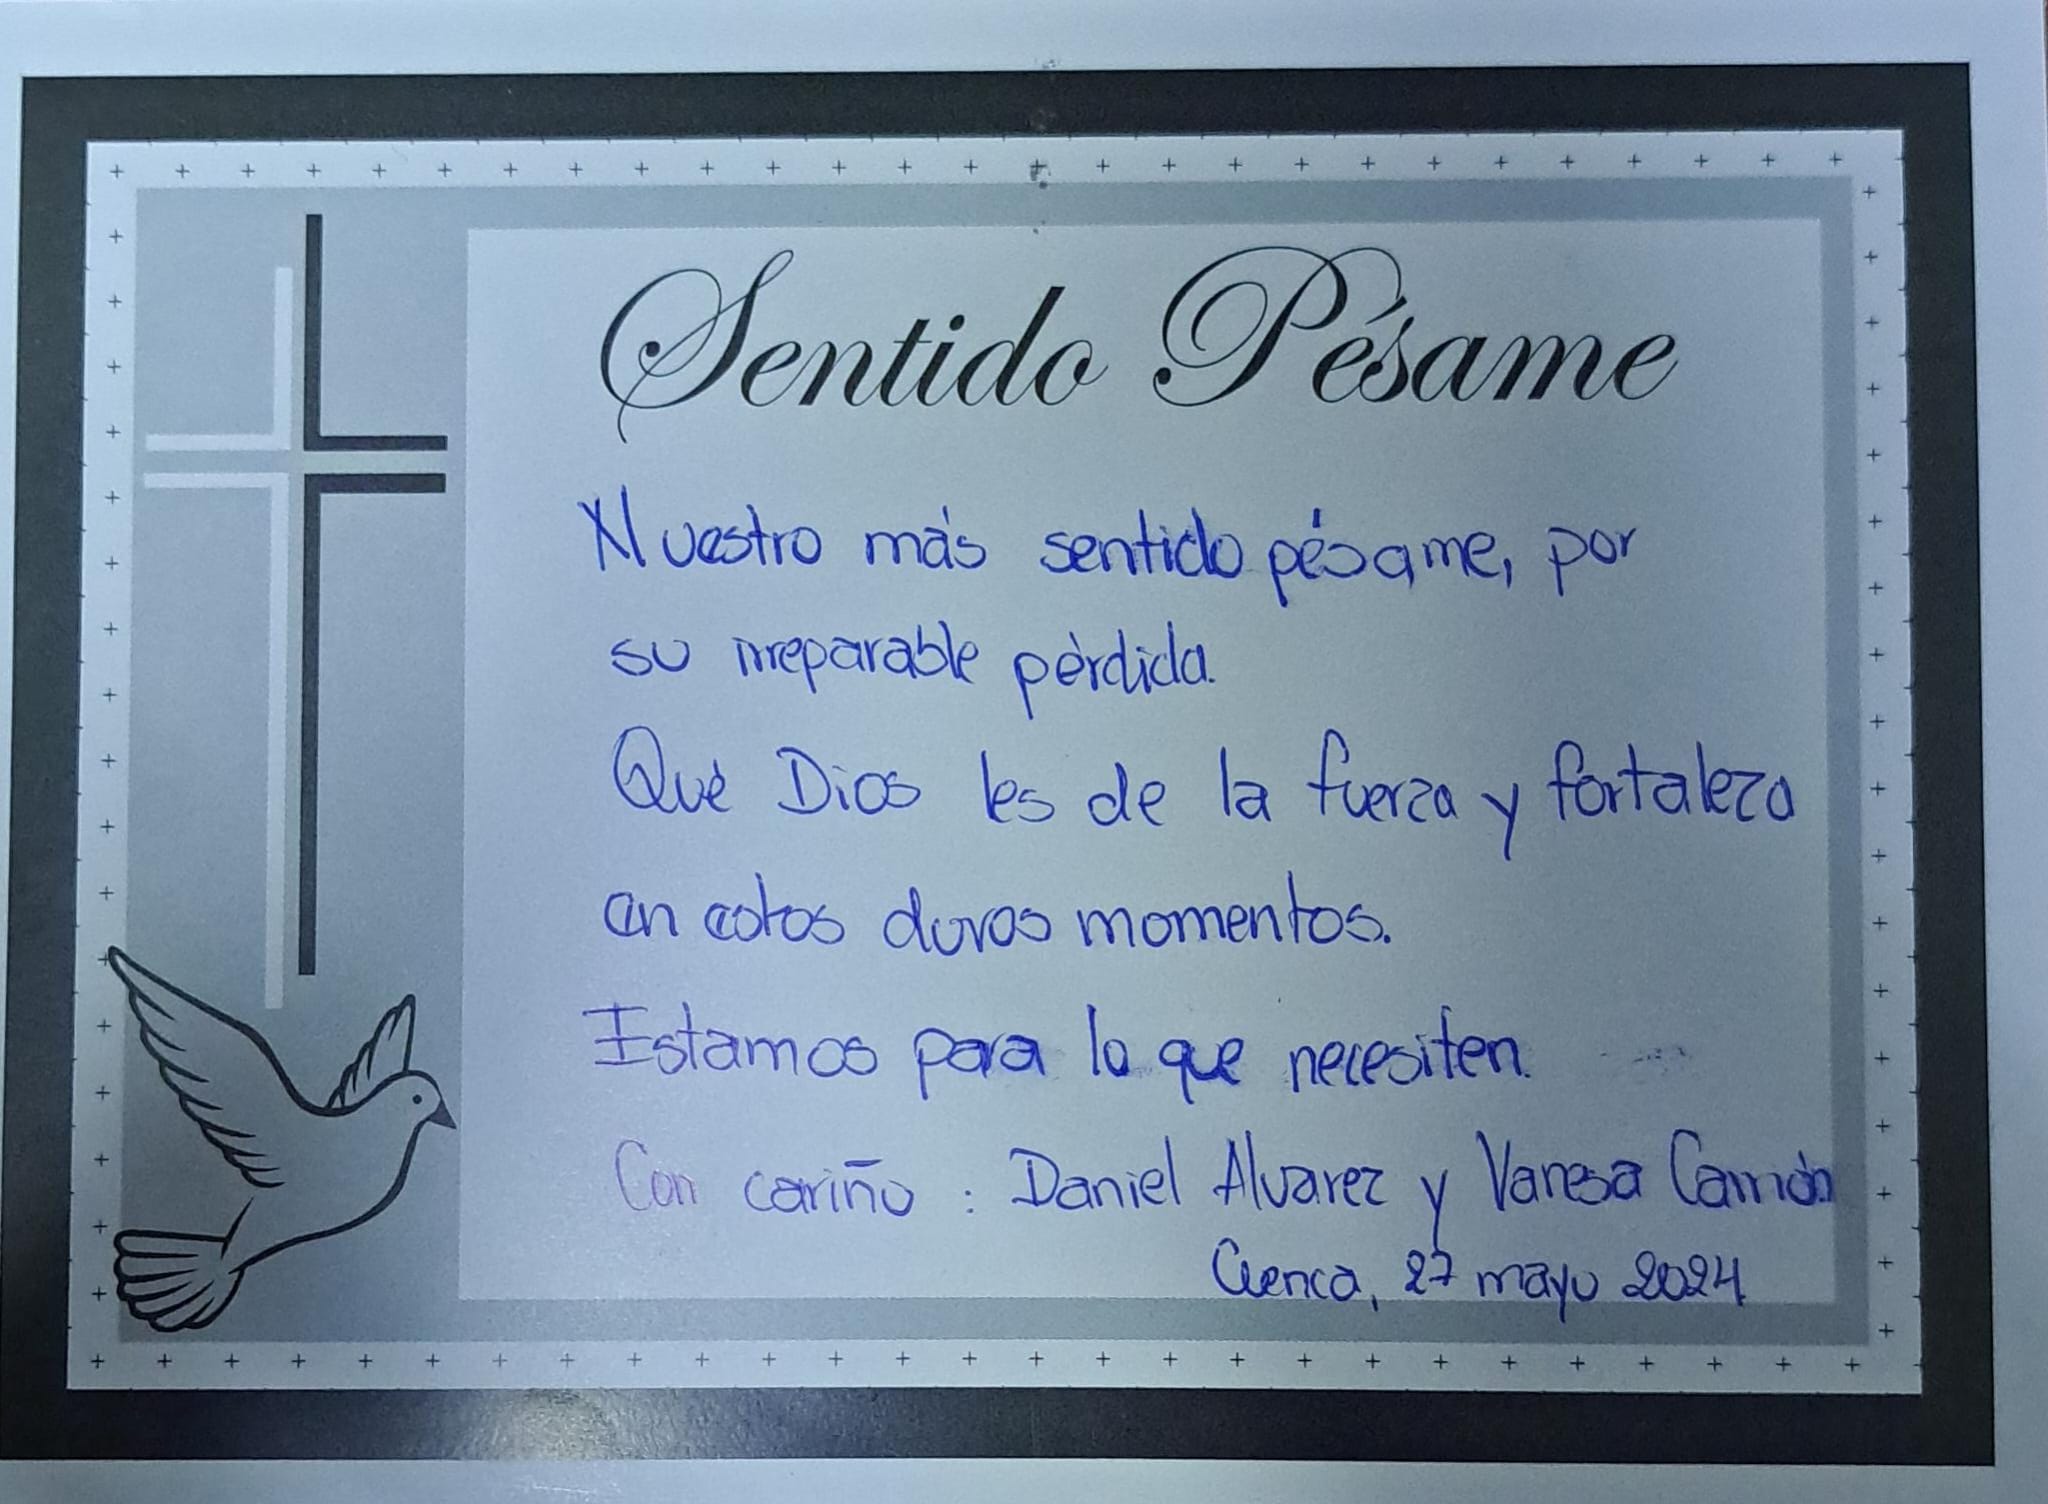 Sentido Pésame
Nuestro más sentido pésame, por
su irreparable pérdida.
Qué Dios les de la fuerza y fortaleza
en estos duros momentos.
Estamos para lo que necesiten.
Con cariño : Daniel Alvarez y Vanesa Carrión
Cuenca, 27 mayo 2024